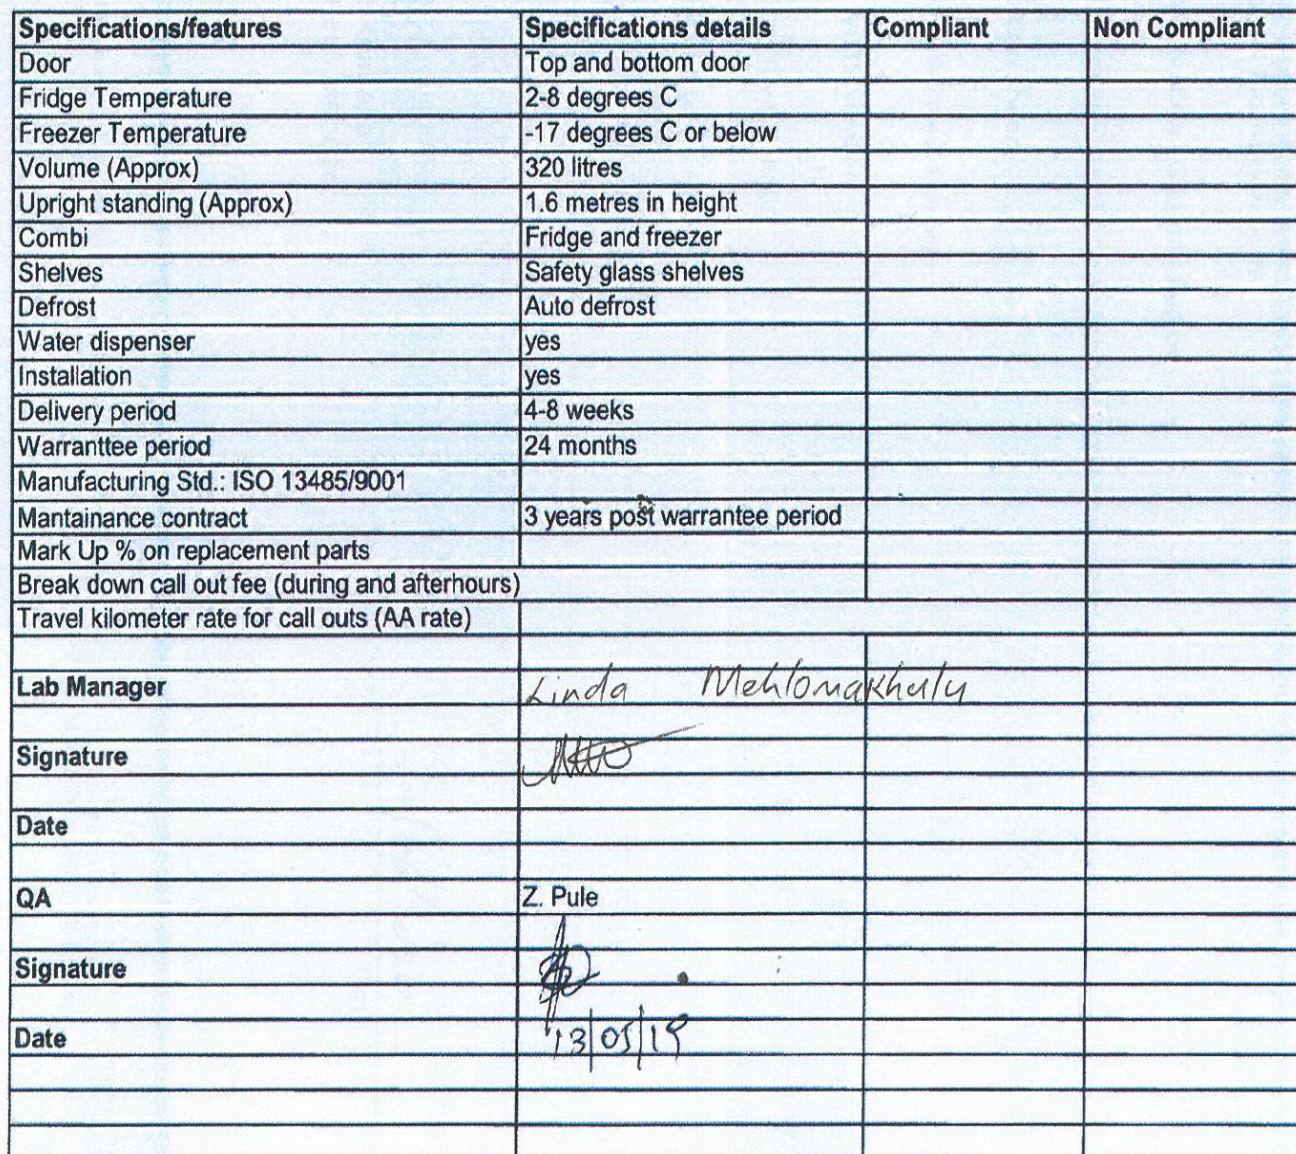 Specifications/features Specifications details Compliant Non Compliant
Door Top and bottom door
Fridge Temperature 2-8 degrees C
Freezer Temperature -17 degrees C or below
Volume (Approx) 320 litres
Upright standing (Approx) 1.6 metres in height
Combi Fridge and freezer
Shelves Safety glass shelves
Defrost Auto defrost
Water dispenser yes
Installation yes
Delivery period 4-8 weeks
Warranttee period 24 months
Manufacturing Std.: ISO 13485/9001
Mantainance contract 3 years post warrantee period
Mark Up % on replacement parts
Break down call out fee (during and afterhours)
Travel kilometer rate for call outs (AA rate)
Lab Manager Linda Mehlomakhulu
Signature
Date
QA Z. Pule
Signature
Date 13/05/19